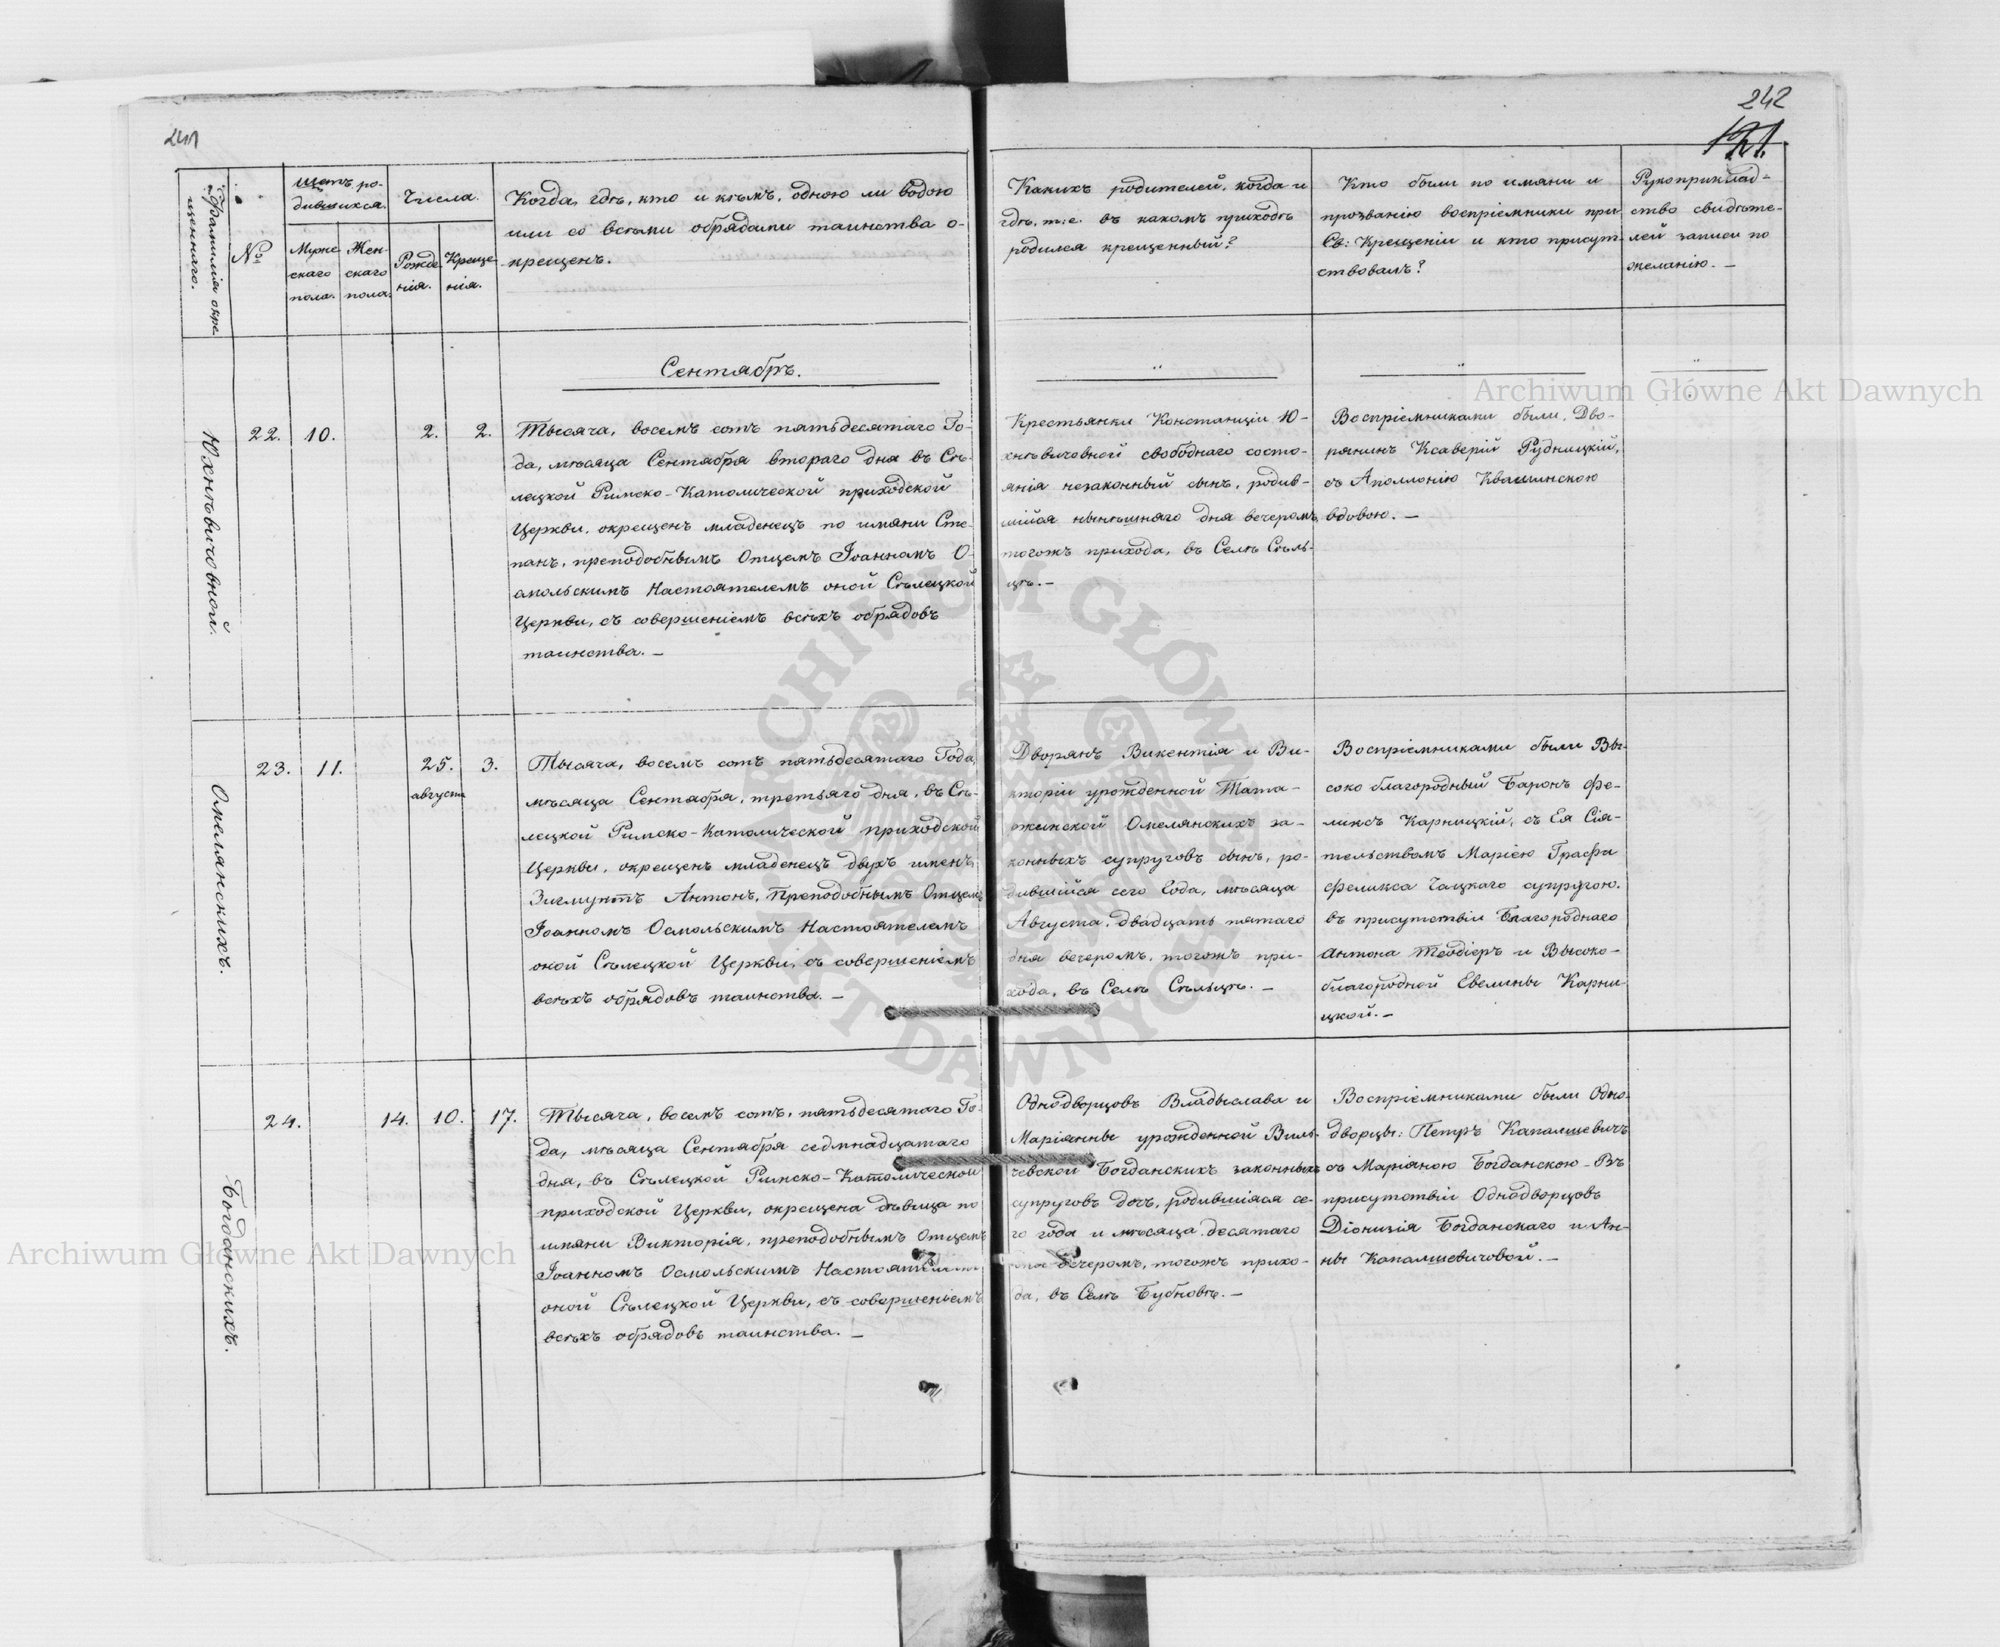 241
242
121.
Фамилія окре-
щеннаго.
№
Щетъ ро-
дившихся.
Мужс-
скаго
пола.
Жен-
скаго
пола.
Числа.
Рожде-
нія.
Креще-
нія.
Когда, гдѣ, кто и кѣмъ, одною ли водою
или со всѣми обрядами таинства о-
крещенъ.
Какихъ родителей, когда и
гдѣ, т.е. въ какомъ приходѣ
родился крещенный?
Кто были по имяни и
прозванію воспріемники при
Св: Крещеніи и кто присут-
ствовалъ?
Рукоприклад-
ство свидѣте-
лей записи по
желанію. —
Сентябрь.
Юхнѣвичовной.
22. 10. 2. 2.
Тысяча, восемь сотъ пятьдесятаго Го-
да, мѣсяца Сентября втораго дня въ Сѣ-
лецкой Римско-Католической приходской
Церкви, окрещенъ младенецъ по имяни Сте-
панъ, преподобнымъ Отцемъ Іоанномъ О-
смольскимъ Настоятелемъ оной Сѣлецкой
Церкви, съ совершеніемъ всѣхъ обрядовъ
таинства. —
Крестьянки Констанціи Ю-
хнѣвичовной свободнаго состо-
янія незаконный сынъ, родив-
шійся нынѣшняго дня вечеромъ,
тогожъ прихода, въ Селѣ Сѣль-
цѣ. —
Воспріемниками были, Дво-
рянинъ Ксаверій Рудницкій,
съ Аполлонію Квашинскою
вдовою. —
Омелянскихъ.
23. 11. 25. 3.
августа
Тысяча, восемь сотъ пятьдесятаго Года,
мѣсяца Сентября, третьяго дня, въ Сѣ-
лецкой Римско-Католической приходской
Церкви, окрещенъ младенецъ двухъ именъ,
Зигмунтъ Антонъ, Преподобнымъ Отцемъ
Іоанномъ Осмольскимъ Настоятелемъ
оной Сѣлецкой Церкви, съ совершеніемъ
всѣхъ обрядовъ таинства. —
Дворянъ Викентія и Ви-
кторіи урожденной Тата-
жинской Омелянскихъ за-
конныхъ супруговъ сынъ, ро-
дившійся сего Года, мѣсяца
Августа, двадцать пятаго
дня вечеромъ, тогожъ при-
хода, въ Селѣ Сѣльцѣ. —
Воспріемниками были Вы-
соко благородный Баронъ Фе-
ликсъ Карницкій, съ Ея Сія-
тельствомъ Маріею Графа
Феликса Чацкаго супругою.
въ присутствіи Благороднаго
Антона Теодієръ и Высоко-
благородной Евелины Карни-
цкой. —
Богданскихъ.
24. 14. 10. 17.
Тысяча, восемь сотъ, пятьдесятаго Го-
да, мѣсяца Сентября седмнадцатаго
дня, въ Сѣлецкой Римско-Католической
приходской Церкви, окрещена дѣвица по
имяни Викторія, преподобнымъ Отцемъ
Іоанномъ Осмольскимъ Настоятелемъ
оной Сѣлецкой Церкви, съ совершеніемъ
всѣхъ обрядовъ таинства. —
Однодворцовъ Владыслава и
Маріянны урожденной Виль-
чевской Богданскихъ законныхъ
супруговъ дочь, родившіяся се-
го года и мѣсяца десятаго
дня вечеромъ, тогожъ прихо-
да, въ Селѣ Бубновѣ. —
Воспріемниками были Одно-
дворцы: Петръ Капалшевичъ
съ Маріяною Богданскою — Въ
присутствіи Однодворцовъ
Діонизія Богданскаго и Ан-
ны Капалшевичовой. —
Archiwum Główne Akt Dawnych
Archiwum Główne Akt Dawnych
ARCHIWUM GŁÓWNE AKT DAWNYCH